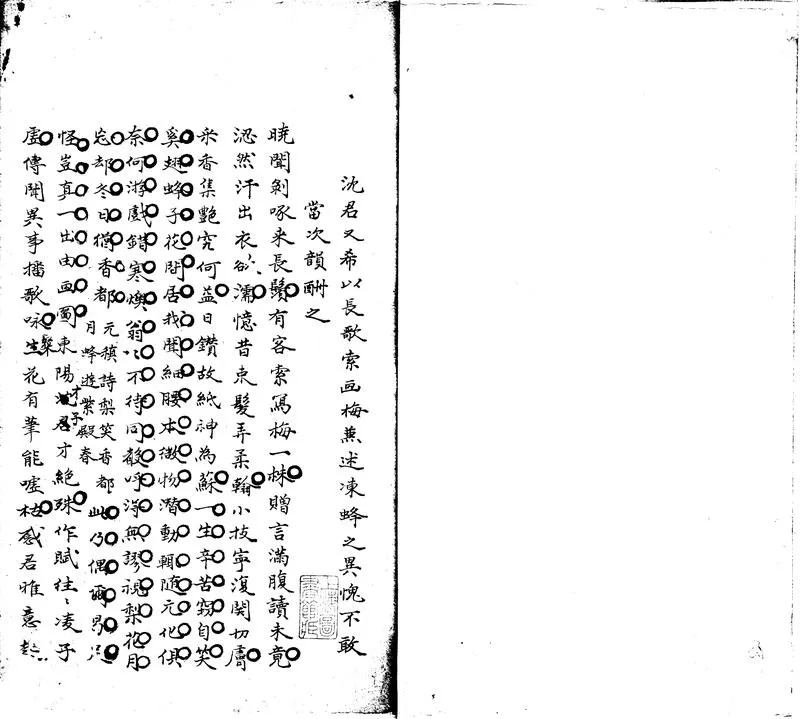 沈君又希以長歌索画梅兼述凍蜂之異愧不敢
當次韻酬之
曉聞剝啄来長鬚有客索寫梅一株贈言滿腹讀未竟
泚然汗出衣欲濡憶昔束髮弄柔翰小技寧復関切膚
采香集艷究何益日鑽故紙神為蘇一生辛苦竊自笑
奚翅蜂子花間居我聞細腰本微物潛動輒随元化俱
奈何游戲錯寒燠翁〻不待同殽呼得無謬視梨花月
忘却冬日猶香都
元稹詩梨笑香都
月蜂遊紫殿春
此乃偶爾足
怪豈真一出由画圖東陽才子才絶殊作賦往〻凌子
虛傳聞異事播歌咏生花有筆能噓枯感君雅意